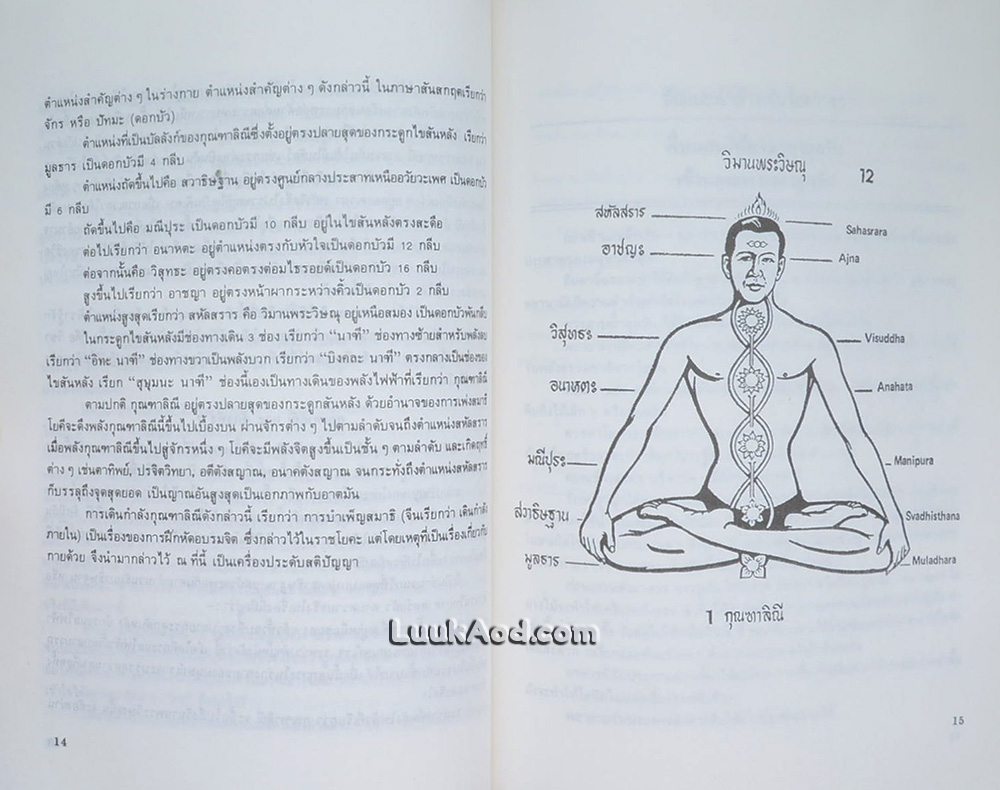 ตำแหน่งสำคัญต่าง ๆ ในร่างกาย ตำแหน่งสำคัญต่าง ๆ ดังกล่าวนี้ ในภาษาสันสกฤตเรียกว่า
จักร หรือ ปัทมะ (ดอกบัว)
ตำแหน่งที่เป็นบัลลังก์ของกุณฑาลิณีซึ่งตั้งอยู่ตรงปลายสุดของกระดูกไขสันหลัง เรียกว่า
มูลธาร เป็นดอกบัวมี 4 กลีบ
ตำแหน่งถัดขึ้นไปคือ สวาธิษฐาน อยู่ตรงศูนย์กลางประสาทเหนืออวัยวะเพศ เป็นดอกบัว
มี 6 กลีบ
ถัดขึ้นไปคือ มณีปุระ เป็นดอกบัวมี 10 กลีบ อยู่ในไขสันหลังตรงสะดือ
ต่อไปเรียกว่า อนาหตะ อยู่ตำแหน่งตรงกับหัวใจเป็นดอกบัวมี 12 กลีบ
ต่อจากนั้นคือ วิสุทธะ อยู่ตรงคอตรงต่อมไธรอยด์เป็นดอกบัว 16 กลีบ
สูงขึ้นไปเรียกว่า อาชญา อยู่ตรงหน้าผากระหว่างคิ้วเป็นดอกบัว 2 กลีบ
ตำแหน่งสูงสุดเรียกว่า สหัสสราร คือ วิมานพระวิษณุ อยู่เหนือสมอง เป็นดอกบัวพันกลีบ
ในกระดูกไขสันหลังมีช่องทางเดิน 3 ช่อง เรียกว่า "นาฑี" ช่องทางซ้ายสำหรับพลังลบ
เรียกว่า "อิทะ นาฑี" ช่องทางขวาเป็นพลังบวก เรียกว่า "บิงคละ นาฑี" ตรงกลางเป็นช่องของ
ไขสันหลัง เรียก "สุษุมนะ นาฑี" ช่องนี้เองเป็นทางเดินของพลังไฟฟ้าที่เรียกว่า กุณฑาลิณี
ตามปกติ กุณฑาลิณี อยู่ตรงปลายสุดของกระดูกสันหลัง ด้วยอำนาจของการเพ่งสมาธิ
โยคีจะดึงพลังกุณฑาลิณีนี้ขึ้นไปเบื้องบน ผ่านจักรต่าง ๆ ไปตามลำดับจนถึงตำแหน่งสหัสสราร
เมื่อพลังกุณฑาลิณีขึ้นไปสู่จักรหนึ่ง ๆ โยคีจะมีพลังจิตสูงขึ้นเป็นชั้น ๆ ตามลำดับ และเกิดฤทธิ์
ต่าง ๆ เช่นตาทิพย์, ปรจิตวิทยา, อตีตังสญาณ, อนาคตังสญาณ จนกระทั่งถึงตำแหน่งสหัสสราร
ก็บรรลุถึงจุดสุดยอด เป็นญาณอันสูงสุดเป็นเอกภาพกับอาตมัน
การเดินกำลังกุณฑาลิณีดังกล่าวนี้ เรียกว่า การบำเพ็ญสมาธิ (จีนเรียกว่า เดินกำลัง
ภายใน) เป็นเรื่องของการฝึกหัดอบรมจิต ซึ่งกล่าวไว้ในราชโยคะ แต่โดยเหตุที่เป็นเรื่องเกี่ยวกับ
กายด้วย จึงนำมากล่าวไว้ ณ ที่นี้ เป็นเครื่องประดับสติปัญญา
14
วิมานพระวิษณุ 12
สหัสสราร Sahasrara
อาชญะ Ajna
วิสุทธะ Visuddha
อนาหตะ Anahata
มณีปุระ Manipura
สวาธิษฐาน Svadhisthana
มูลธาร Muladhara
1 กุณฑาลิณี
15
LuukAod.com